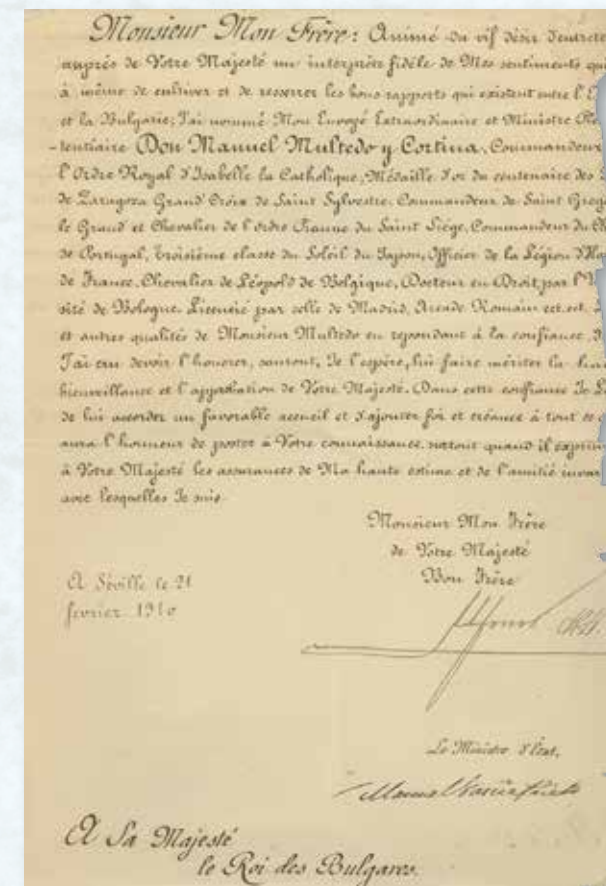 Monsieur Mon Frère: Animé du vif désir d'entrete
auprès de Votre Majesté un interprète fidèle de Mes sentiments qui
à même de cultiver et de resserrer les bons rapports qui existent entre l'E
et la Bulgarie, J'ai nommé Mon Envoyé Extraordinaire et Ministre Ple
-tentiaire Don Manuel Multedo y Cortina, Commandeur
l'Ordre Royal d'Isabelle la Catholique, Médaille d'or du centenaire des
de Zaragoza Grand' Croix de Saint Sylvestre. Commandeur de Saint Grég
le Grand et Chevalier de l'ordre Pianne du Saint Siège, Commandeur du Ch
de Portugal, troisième classe du Soleil du Japon, Officier de la Légion d'Ho
de France. Chevalier de Léopold de Belgique, Docteur en Droit, par l'
sité de Bologne. Licencié par celle de Madrid, Arcade Romain ect. ect.
et autres qualités de Monsieur Multedo en repondant à la confiance, D
J'ai cru devoir l'honorer, sauront, Je l'espère, lui faire mériter la
bienveillance et l'approbation de Votre Majesté. Dans cette confiance Je
de lui accorder un favorable accueil et d'ajouter foi et créance à tout ce
aura l'honneur de porter à Votre connaissance, surtout quand il exprim
à Votre Majesté les assurances de Ma haute estime et de l'amitié invar
avec lesquelles Je suis
Monsieur Mon Frère
de Votre Majesté
Bon Frère
A Séville le 21
fevrier 1910
Le Ministre d'Etat,
Manuel García Prieto
A Sa Majesté
le Roi des Bulgares.